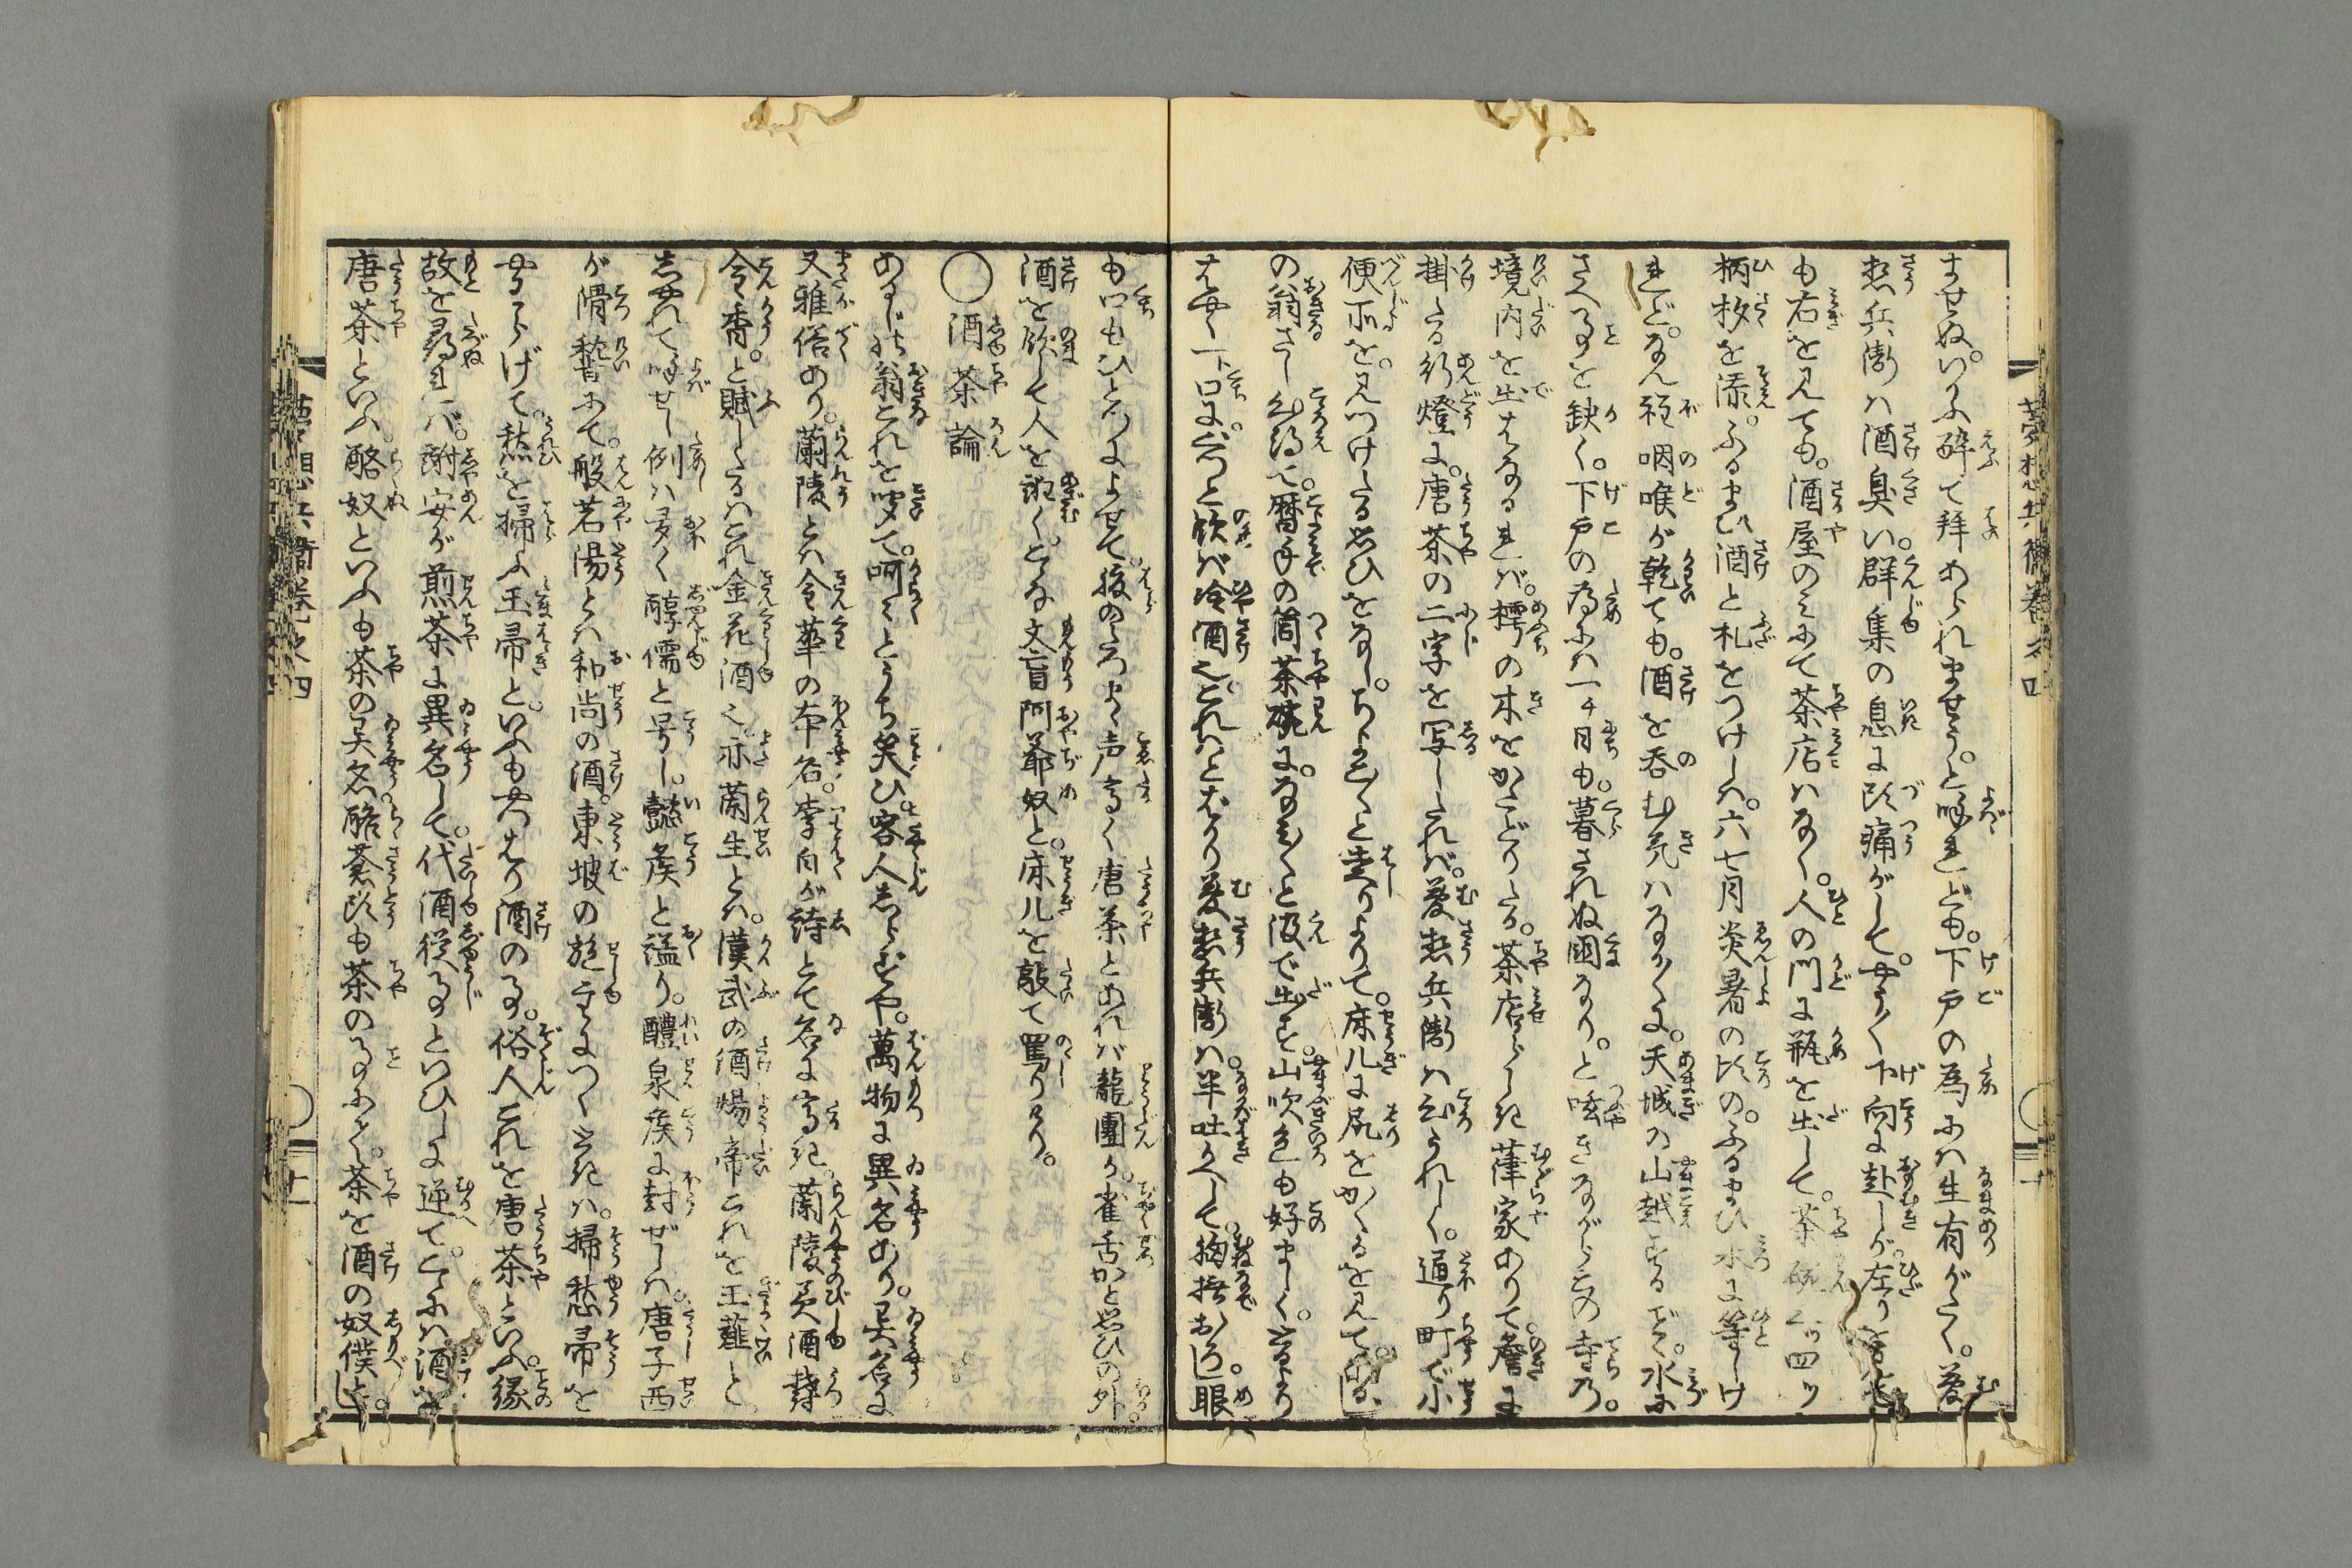 ませぬ。いかに酔て拝あられませう。と呼れども。下戸の為には生有がたく。夢
想兵衛は酒臭い。群集の息に頭痛がして。やうやく下向に赴しが。左りを
も右を見ても。酒屋のみにて茶店はなく。人の門に瓶を出して。茶碗 四ツ
柄杓を添。ふるまひ酒と札をつけしは。六七月炎暑の比の。ふるまひ水に等しけ
れど。なん程咽喉が乾ても。酒を呑む気はなかなかに。天城の山越するごとく。水に
さへ事を缺く。下戸の為には一チ日も。暮されぬ国なり。と呟きながらこの寺の。
境内を出はなるれば。樗の木をかたどりたる。茶店らしき葎家ありて。簷に
掛たる行燈に。唐茶の二字を写したれば。夢想兵衛は心うれしく。道り町で小
便所を。見つけたる思ひをなし。ちよこちよこと走りよりて。床几に尻をかくるを見て。
の翁さし心得て。暦手の筒茶碗に。なみなみと汲で出す。山吹色も好ましく。
はやく一ト口に。ぐつと飲ば冷酒也。これはとばかり夢想兵衛は。半吐かへして。胸撫おろし。眼
も口もひとつによせて。腹のたつまゝ声高く唐茶とあれば龍團か。雀舌かと思ひの外。
酒を飲して人を誑く。どな文盲阿爺奴と。床几を敲て罵りけり。
○酒茶論
あるじの翁これを聞て。呵々とうち笑ひ。客人しらずや。萬物に異名あり。異名に
又雅俗あり。蘭陵とは令華の本名。李白が詩とて名に高き。蘭陵美酒欝
金香。と賦したるはこれ金花酒也。亦蘭生とは。漢武の酒煬帝これを玉薤と。
しやれて呼せし例は多く醇儒と号し。懿侯と謚り。醴泉侯に封ぜしは。唐子西
が滑稽にて。般若湯とは和尚の酒。東坡の
やはらげて。愁を掃ふ玉帚と。いふもやつはり酒の事。俗人これを唐茶といふ。縁
故を尋れば。謝安が煎茶に異名して。代酒従事といひしに逆て。こゝには酒を
唐茶といふ。酪奴といふも茶の異名。酪蒼頭も茶の事にて。茶を酒の奴僕とし。